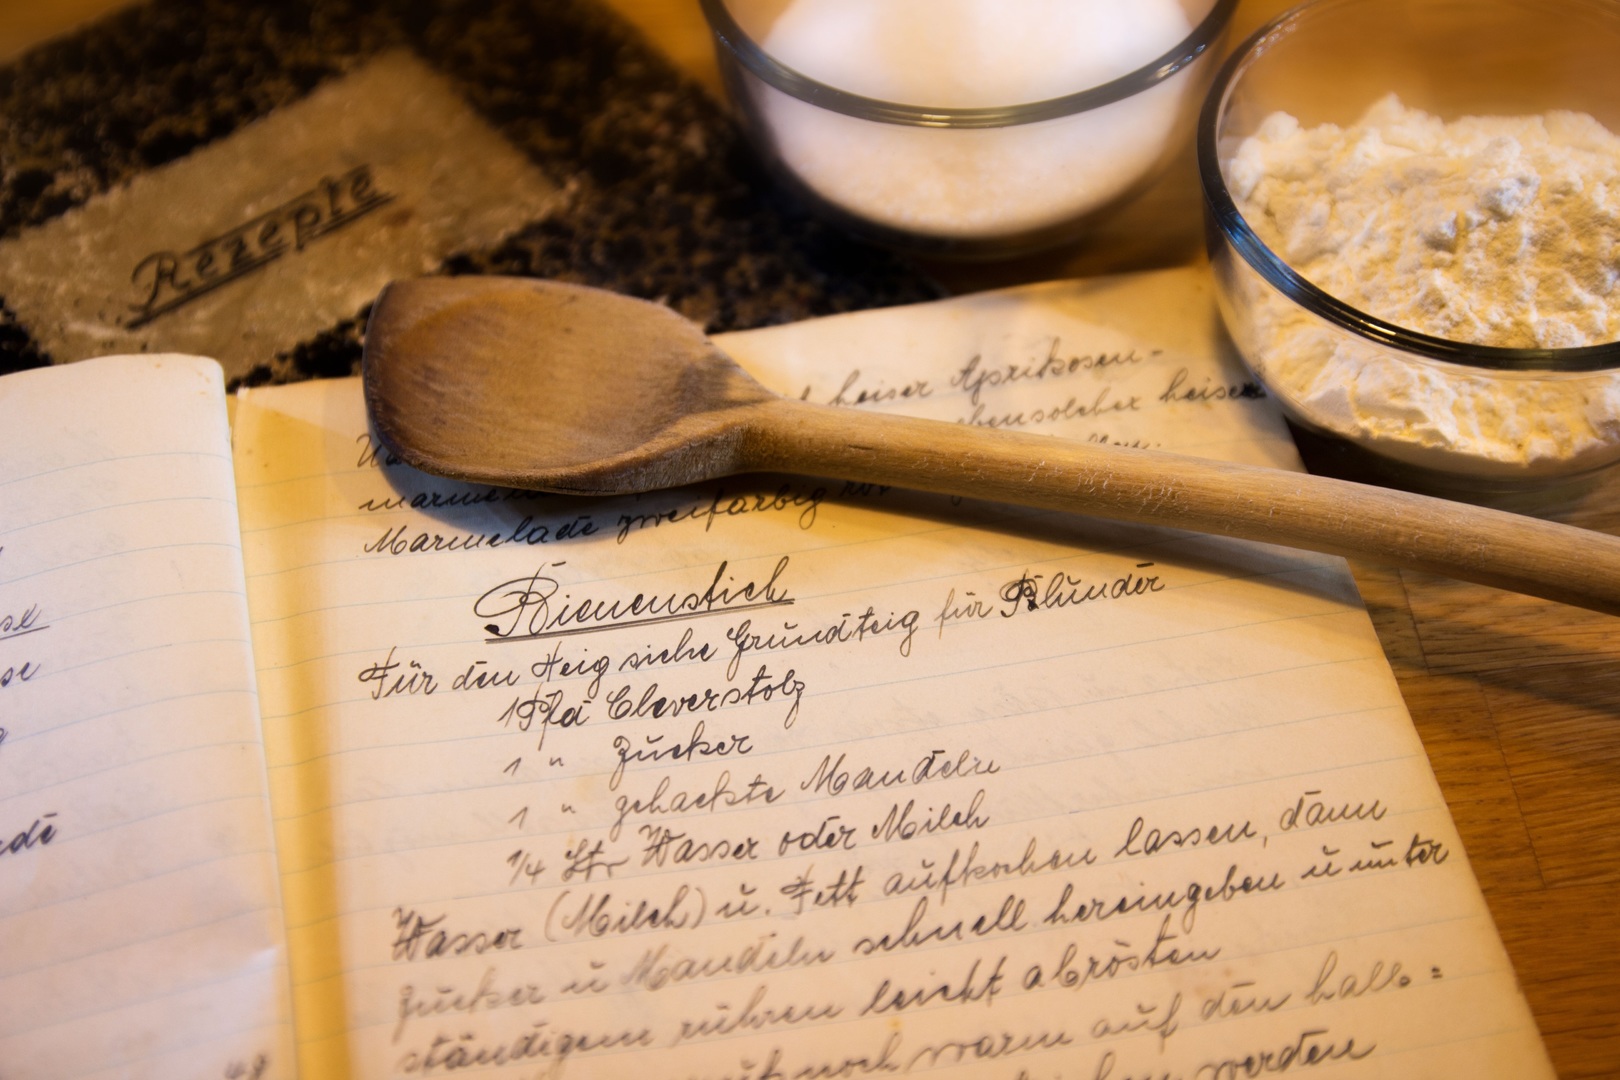 Rezepte
heiser Aprikosen-
ebensolcher heiser
Marmelade zweifarbig
Bienenstich
Für den Teig siehe Grundteig für Plunder
1 Pfd Cleverstolz
1 " Zucker
1 " gehackte Mandeln
1/4 Ltr Wasser oder Milch
Wasser (Milch) u. Fett aufkochen lassen, dann
Zucker u Mandeln schnell hereingeben u unter
ständigem rühren leicht abrösten
noch warm auf den halb =
werden
se
nde